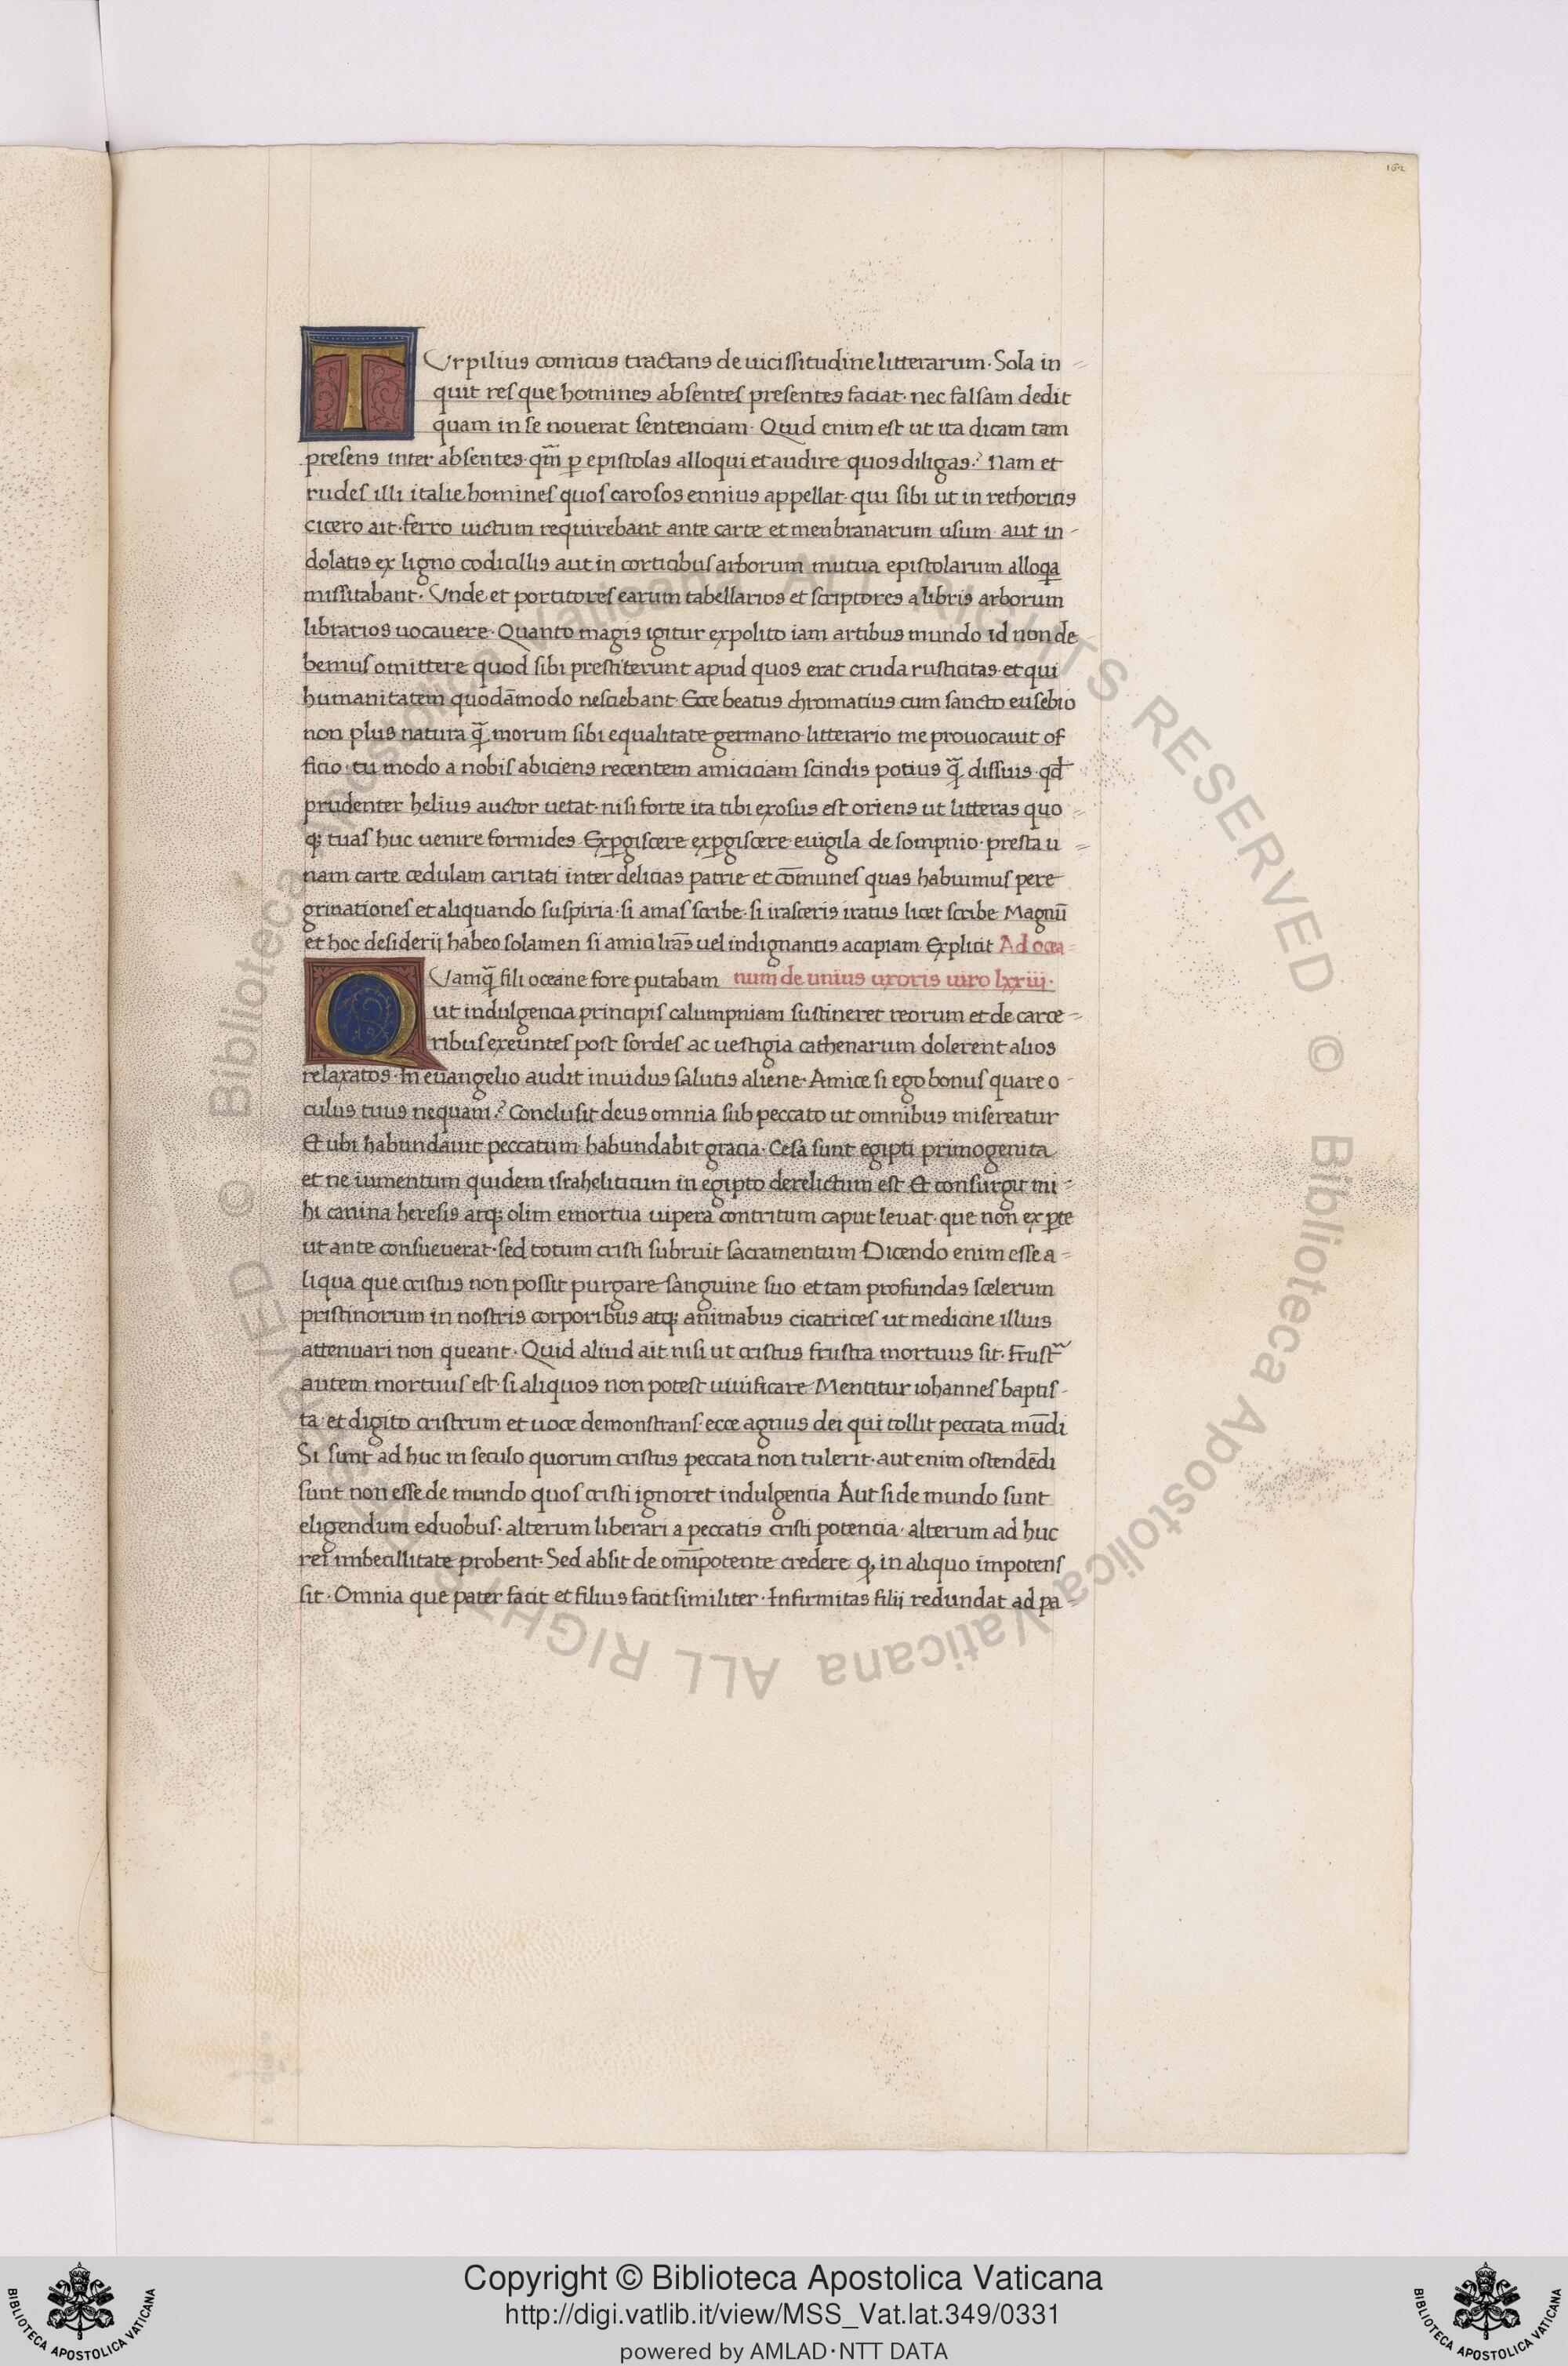 162
TUrpilius comicus tractans de uicissitudine litterarum· Sola in-
quit res que homines absentes presentes faciat· nec falsam dedit
quam in se nouerat sentenciam· Quid enim est ut ita dicam tam
presens inter absentes· qm̅ ꝑ epistolas alloqui et audire quos diligas? Nam et
rudes illi italie homines quos carosos ennius appellat· qui sibi ut in rethoricis
cicero ait· ferro uictum requirebant ante carte et menbranarum usum· aut in-
dolatis ex ligno codicillis aut in corticibus arborum mutua epistolarum alloqa
missitabant· Unde et portitores earum tabellarios et scriptores a libris arborum
librarios uocauere· Quanto magis igitur expolito iam artibus mundo id non de
bemus omittere quod sibi prestiterunt apud quos erat cruda rusticitas· et qui
humanitatem quodāmodo nesciebant· Ecce beatus chromatius cum sancto eusebio
non plus natura q̄ morum sibi equalitate germano· litterario me prouocauit of
ficio· tu modo a nobis abiciens recentem amiciciam scindis potius q̄ dissuis· qd̄
prudenter helius auctor uetat· nisi forte ita tibi exosus est oriens ut litteras quo-
q; tuas huc uenire formides Exꝑgiscere exꝑgiscere euigila de sompnio· presta u-
nam carte cedulam caritati inter delicias patrie et cōmunes quas habuimus pere
grinationes et aliquando suspiria· si amas scribe· si irasceris iratus licet scribe Magnū
et hoc desiderij habeo solamen si amici lrās uel indignantis accipiam Explicit Ad ocea-
QUamq̄ fili oceane fore putabam num de unius uxoris uiro lxxiii·
ut indulgencia principis calumpniam sustineret reorum et de carce-
ribus exeuntes post sordes ac uestigia cathenarum dolerent alios
relaxatos· In euangelio audit inuidus salutis aliene· Amice si ego bonus quare o-
culus tuus nequam? Conclusit deus omnia sub peccato ut omnibus misereatur
Et ubi habundauit peccatum habundabit gracia· Cesa sunt egipti primogenita
et ne iumentum quidem israheliticum in egipto derelictum est Et consurgit mi-
hi canina heresis atq; olim emortua uipera contritum caput leuat· que non ex ꝑte
ut ante consueuerat· sed totum cristi subruit sacramentum Dicendo enim esse a-
liqua que cristus non possit purgare sanguine suo et tam profundas scelerum
pristinorum in nostris corporibus atq; animabus cicatrices ut medicine illius
attenuari non queant· Quid aliud ait nisi ut cristus frustra mortuus sit· Frust̃
autem mortuus est· si aliquos non potest uiuificare Mentitur iohannes baptis-
ta et digito cristrum et uoce demonstrans· ecce agnus dei qui tollit peccata mūdi
Si sunt ad huc in seculo quorum cristus peccata non tulerit· aut enim ostendēdi
sunt non esse de mundo quos cristi ignoret indulgencia Aut si de mundo sunt
eligendum eduobus· alterum liberari a peccatis cristi potencia· alterum ad huc
rei imbecillitate probent· Sed absit de om̅ipotente credere ꝙ in aliquo impotens
sit· Omnia que pater facit et filius facit similiter· Infirmitas filij redundat ad pa-
© Biblioteca Apostolica Vaticana ALL RIGHTS RESERVED © Biblioteca Apostolica Vaticana ALL RIGHTS RESERVED
Copyright © Biblioteca Apostolica Vaticana
http://digi.vatlib.it/view/MSS_Vat.lat.349/0331
powered by AMLAD·NTT DATA
BIBLIOTECA APOSTOLICA VATICANA
BIBLIOTECA APOSTOLICA VATICANA